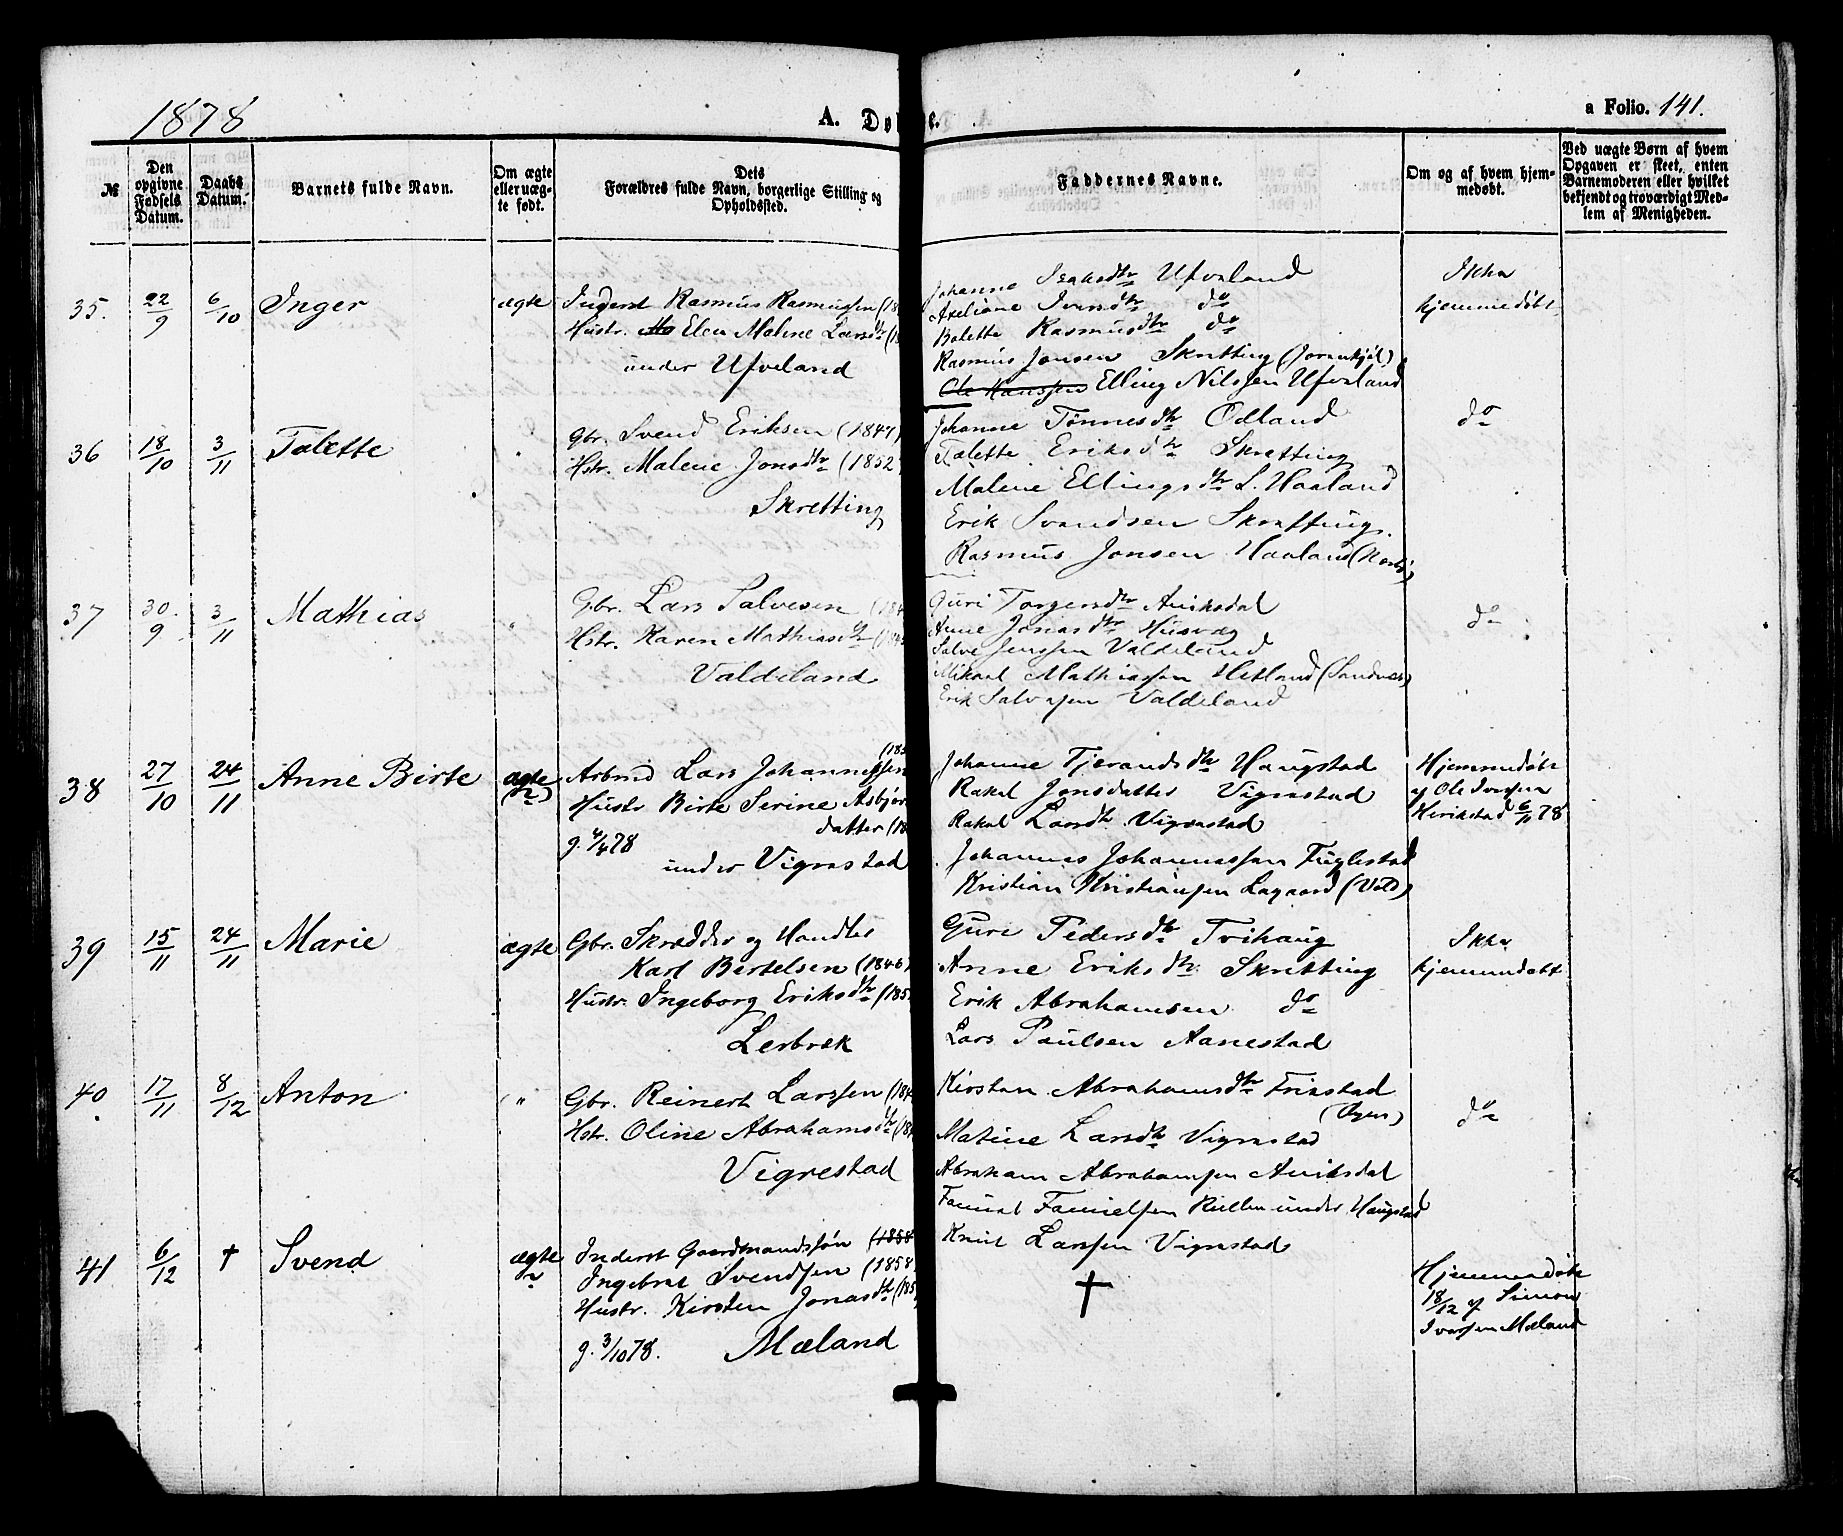 1878
A. Døb
e.
a Folio. 141.
№
Den opgivne Fødsels Datum.
Daabs Datum.
Barnets fulde Navn.
Om ægte eller uægte født.
Dets Forældres fulde Navn, borgerlige Stilling og Opholdssted.
Faddernes Navne.
Om og af hvem hjemmedøbt.
Ved uægte Børn af hvem Opgaven er skeet, enten Barnemoderen eller hvilket bekjendt og troværdigt Medlem af Menigheden.
35. 22/9 6/10 Inger ægte
Inderst Rasmus Rasmussen (18
Hustr. Elen Malene Larsdtr (18
under Ufveland
Johanne Isaksdtr Ufveland
Axeliane Iversdtr do
Bolette Rasmusdtr do
Rasmus Jonsen Skretting (Jorenkjøl)
Ole Hanssen Elling Nilssen Ufveland
Ikke
hjemmedøbt
36 18/10 3/11 Talette "
Gbr. Svend Eriksen (1847)
Hstr. Malene Jonsdtr (1852
Skretting
Johanne Tønnesdtr Ødland
Talette Eriksdtr Skretting
Malene Ellingsdtr S. Haaland
Erik Svendsen Skretting.
Rasmus Jonsen Haaland
do
37 30/9 3/11 Mathias "
Gbr. Lars Salvesen (184
Hstr. Karen Mathiasdtr (184
Valdeland
Guri Torgersdtr Aniksdal
Anne Jonasdtr Husvæg
Salve Jenssen Valdeland
Mikael Mathiassen Hetland (Sandnes)
Erik Salvesen Valdeland
do
38 27/10 24/11 Anne Birte ægte (2)
(185
Arbmd Lars Johannessen
Hustr Birte Serine Asbjør
datter (18
g. 4/4 78
under Vigrestad
Johanne Tjerandsdtr Haugstad
Rakel Jonsdatter Vigrestad
Rakel Larsdtr Vigrestad
Johannes Johannessen Fuglestad
Kristian Kristiansen Lagaard (Vold)
Hjemmedøbt
af Ole Iversen
Herikstad 6/11 78
39 15/11 24/11 Marie ægte
Gbr. Skrædder og Handler
Karl Bertelsen (1846)
Hustr. Ingeborg Eriksdtr (185
Lerbrek
Guri Pedersdtr Tvihaug
Anne Eriksdtr Skretting
Erik Abrahamsen do
Lars Paulsen Aanestad
Ikke
hjemmedøbt
40. 17/11 8/12 Anton "
Gbr. Reinert Larssen (184
Hstr. Oline Abrahamsdtr (18
Vigrestad
Kirsten Abrahamsdtr Friestad
(Ogne)
Maline Larsdtr Vigrestad
Abraham Abrahamsen Aniksdal
Samuel Samuelsen under Haugstad
Knut Larssen Vigrestad
do
41 6/12 † Svend ægte 2
Inderst Gaardmandssøn (1858
Ingebret Svendsen (1858)
Hustr. Kirsten Jonasdtr (185
g. 3/10 78. Mæland
†
Hjemmedøbt
18/12 af Simon
Iversen Mæland